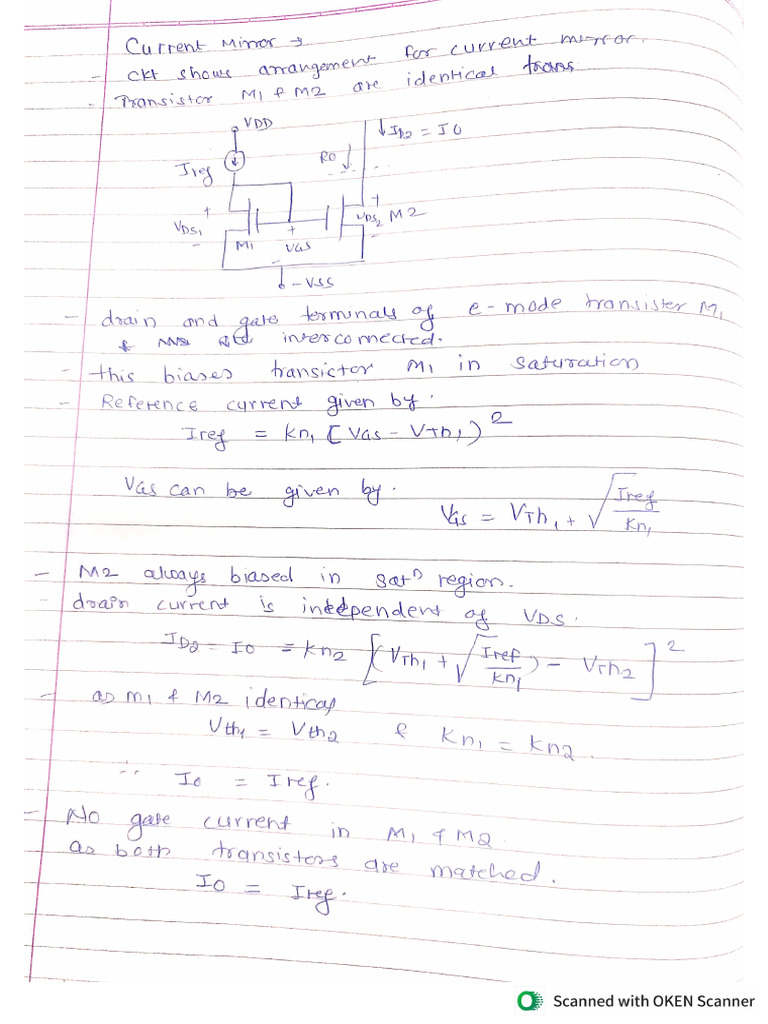 Current Mirror →
- ckt shows arrangement for current mirror.
- Transistor M1 & M2 are identical trans
VDD
↓ID2 = IO
Iref
RO
+
VDS1
-
M1
+
VGS
-
+
VDS2
-
M2
-VSS
- drain and gate terminals of e-mode transister M1
& interconnected.
- this biases transictor M1 in saturation
- Reference current given by.
Iref = Kn1 [VGS - VTh1)²
VGS can be given by.
VGS = VTh1 + √(Iref/Kn1)
- M2 always biased in satⁿ region.
- drain current is independent of VDS.
ID2 = IO = Kn2 [(VTh1 + √(Iref/Kn1)) - VTh2]²
- as M1 & M2 identical
Vth1 = Vth2 & Kn1 = Kn2.
∴ Io = Iref.
- No gate current in M1 & M2
as both transistors are matched.
IO = Iref.
Scanned with OKEN Scanner